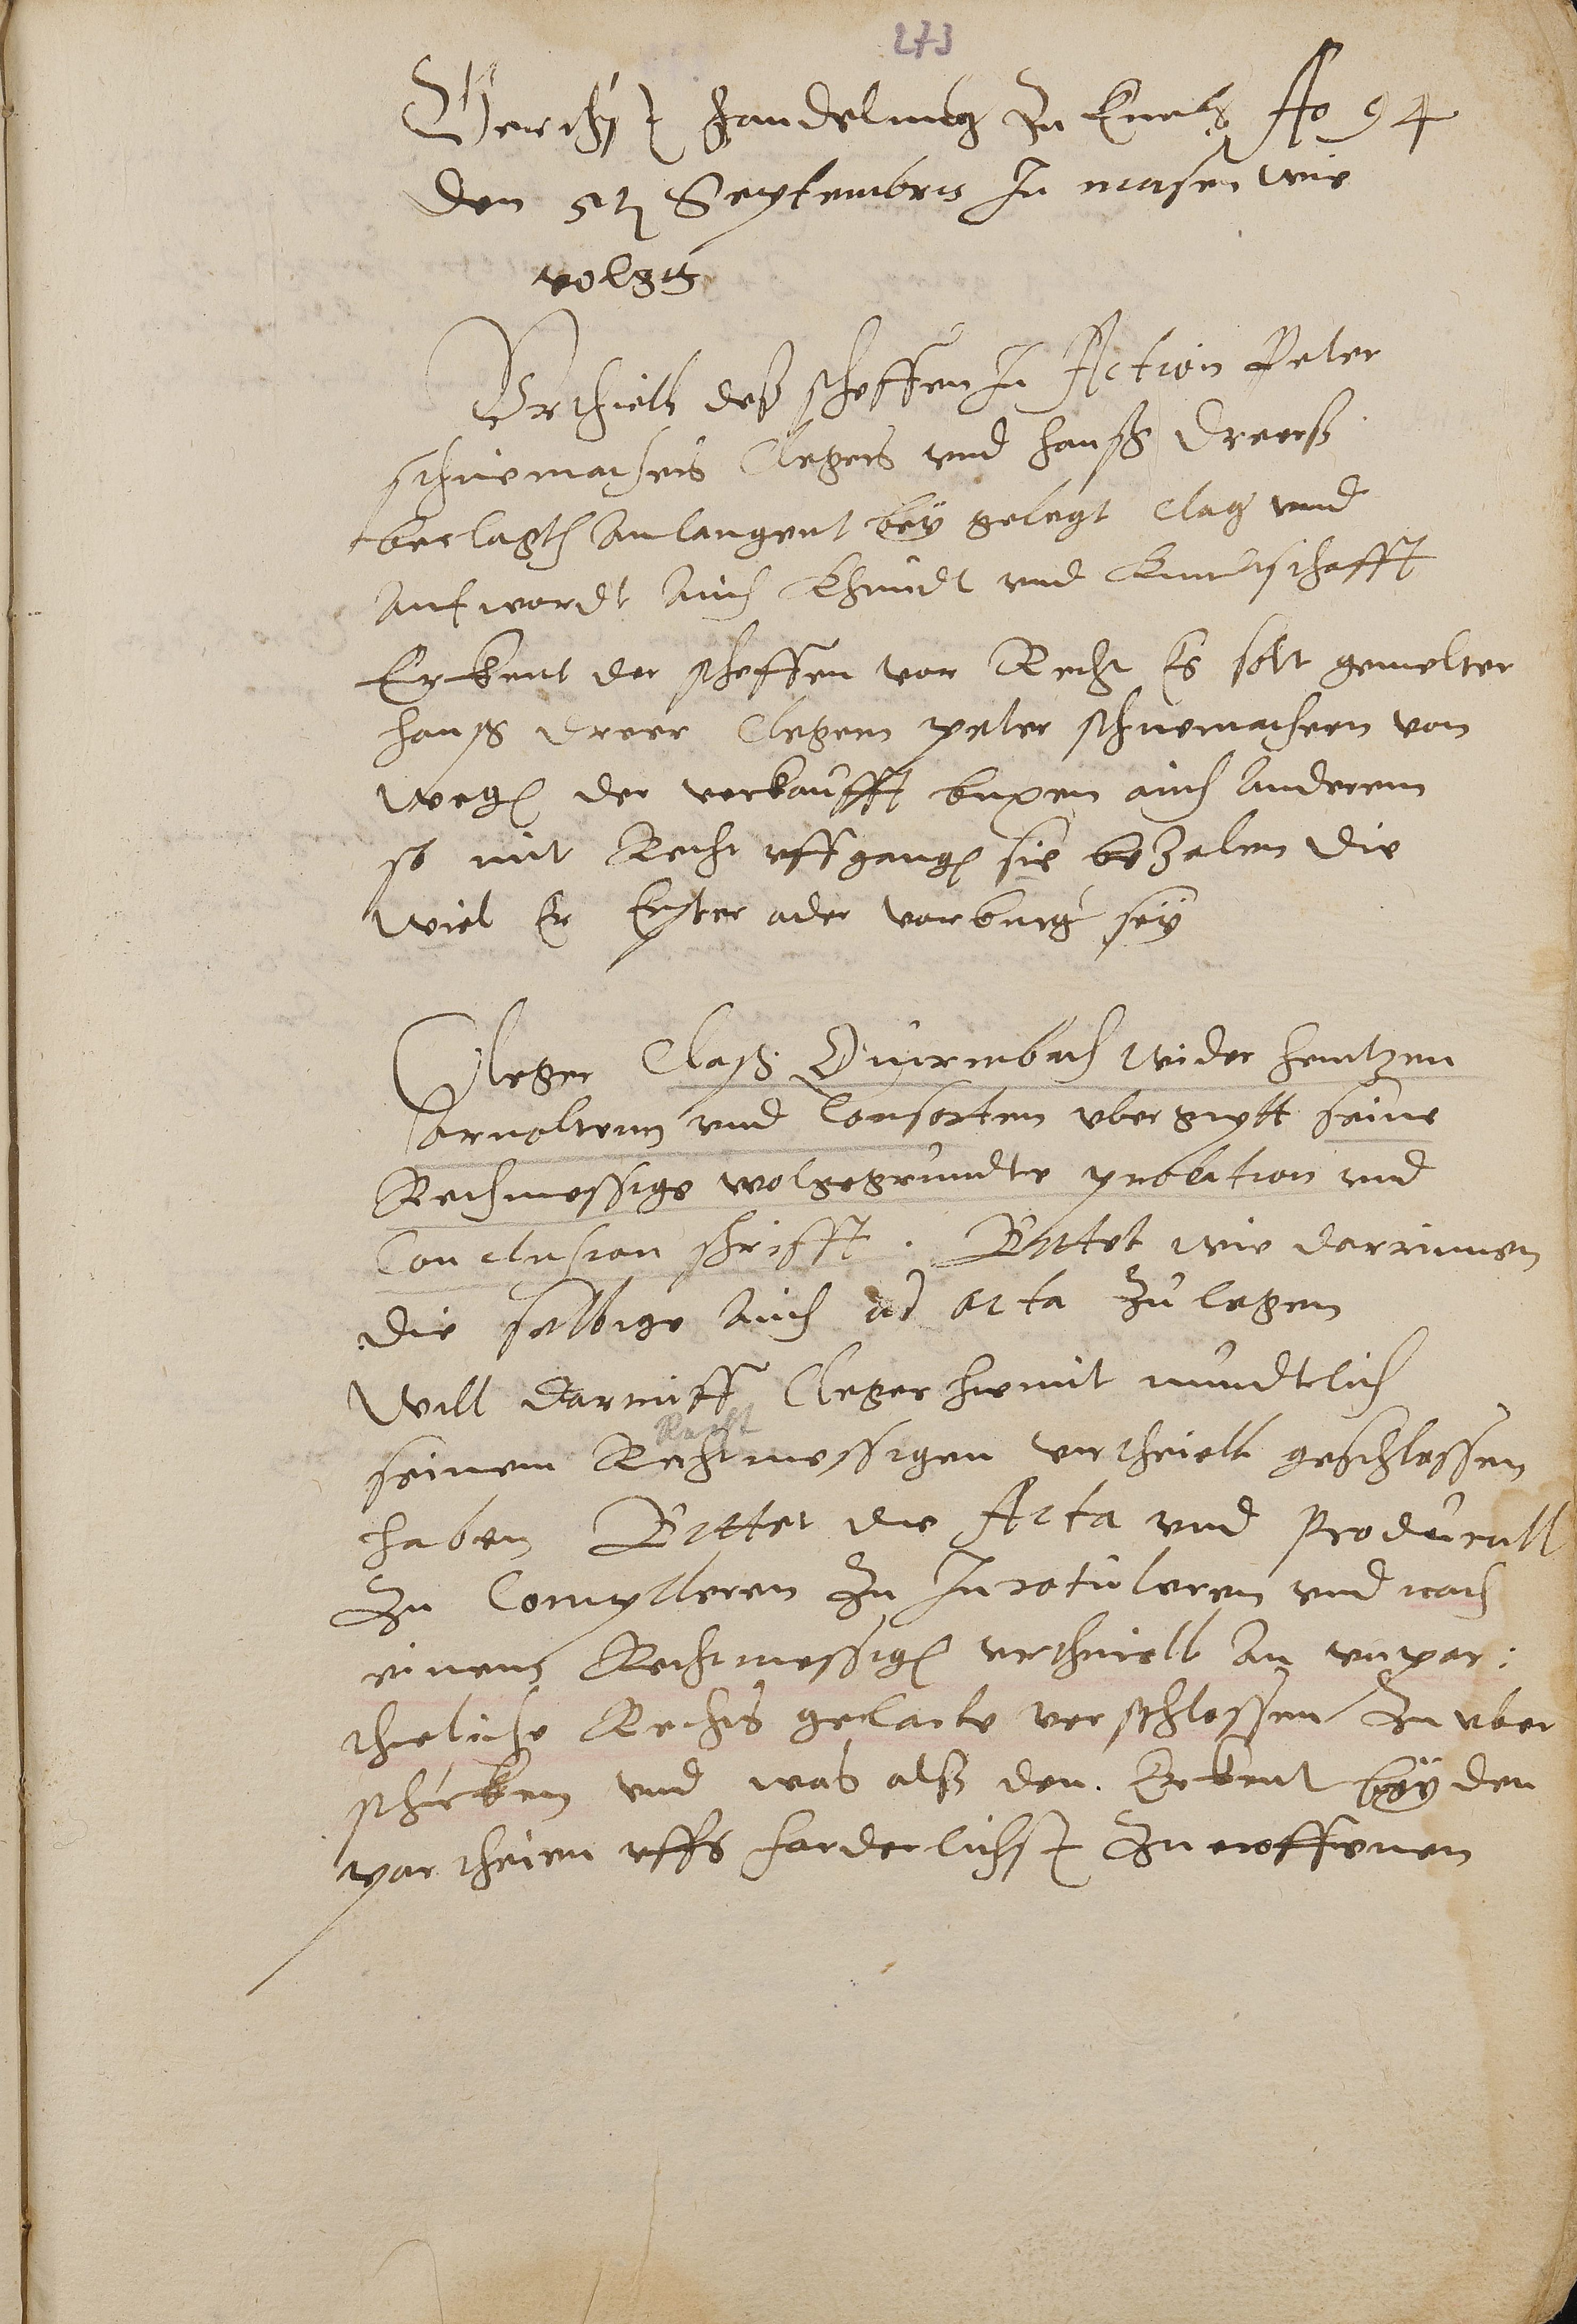 273
Gerichts handelung Zu Ao 94
den 5t September In masen wie
volgtt
Vrtheill deß scheffen In Action Peter
schuemachers Clegers vnd hanß Dreerß
beclagten Anlangent bey gelegt clag vnnd
Antwordt Auch Khundt vnd Kuntschafft
Erkent der scheffen vor Recht Es soll gemelter
hanß Dreer Clegern peter schuemachern von
wegen der verkaufft buxen auch Anderem
so mit Recht vffgangen sie bezalen die
wiel Er oder vorburg sey
Cleger Claß Quirmbach wider hentzen
Arnolten vnd Consorten vbergiptt seine
Rechmessige wolgegrundte probation vnd
Conclusion schrifft. Bittet wie darinnen
die selbige Auch ad acta Zu legen
Will daruff Cleger hiemit mundtlich
Recht
seinem Rechtmessigen vrtheill geschlossen
haben Bittet die Acta vnd Producall
Zu Complleren Zu Inrotuleren vnd nach
einem Rechtmessigen vrtheill An vnpar:
theliche Rechts gelarte verschlossen Zu vber
schicken vnd was alß den. Erkent bey den
partheien vffs forderlichst Zu eroffenen